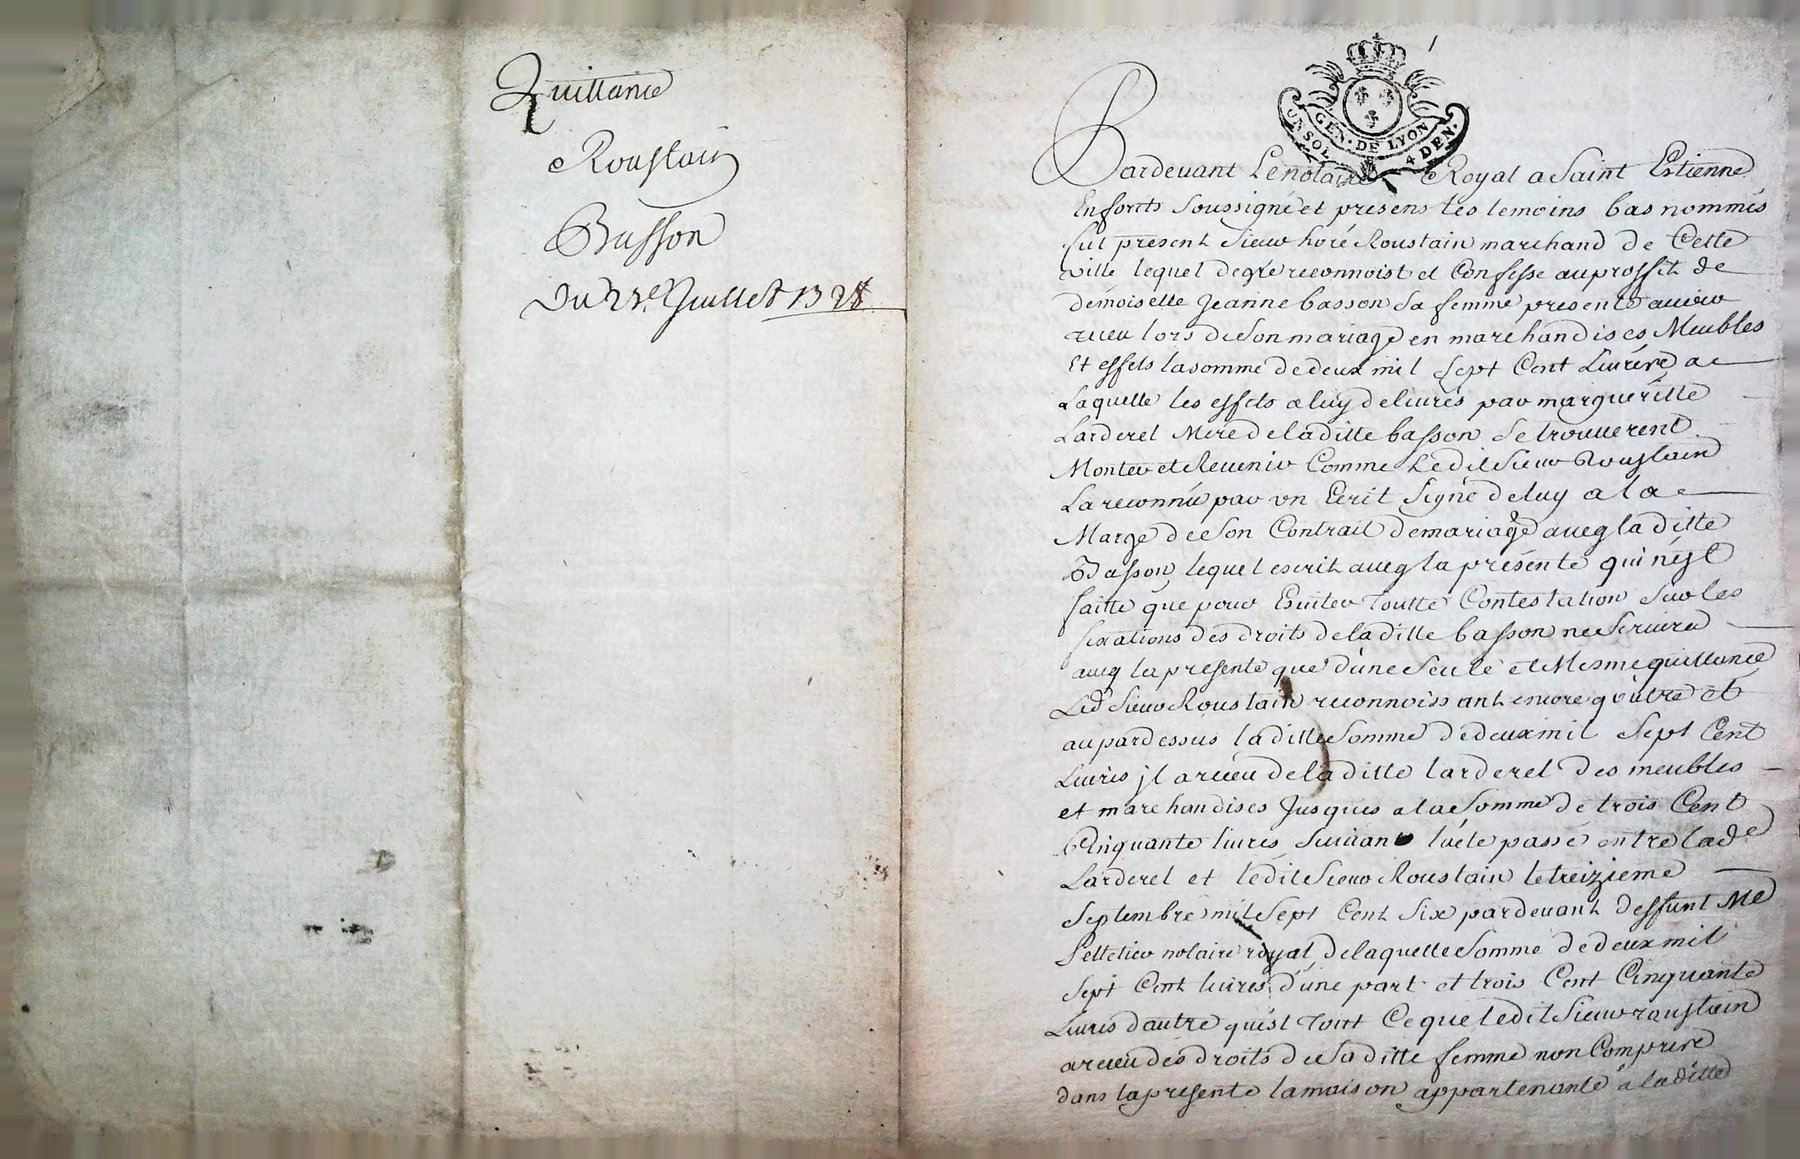 Quittance
Roustain
Basson
Du 22e Juillet 1728
GÉN. DE LYON
UN SOL 4 DEN.
Pardevant Le notaire Royal a Saint Estienne
En forets soussigné et presens les temoins bas nommés
fut present Sieur horé Roustain marchand de Cette
ville lequel de gré reconnoist et Confesse au proffit de
demoiselle Jeanne basson sa femme presente avoir
receu lors de son mariage en marchandises Meubles
Et effets la somme de deux mil sept Cent Livres a
Laquelle les effets a luy delivrés par margueritte
Larderet Mere de la ditte basson se trouverent
Monter et Revenir Comme Ledit Sieur Roustain
La reconnu par un Ecrit signé de luy a la
Marge de son Contrait de mariage aveq la ditte
Basson, lequel escrit aveq la présente qui n'est
faitte que pour Eviter toutte Contestation sur les
fixations des droits de la ditte basson ne servira
aveq la presente que d'une seule et Mesme quittance
Led Sieur Roustain reconnoissant encore qoutre et
au pardessus la ditte somme de deux mil Sept Cent
Livres jl a receu de la ditte larderet des meubles
et marchandises Jusques a la somme de trois Cent
Cinquante livres suivant lacte passé entre lade
Larderet et ledit Sieur Roustain le treizieme
Septembre mil Sept Cent Six pardevant deffunt Me
Pelletier notaire royal, de laquelle somme de deux mil
Sept Cent livres d'une part et trois Cent Cinquante
Livres dautre quest tout Ce que ledit Sieur roustain
a receu des droits de sa ditte femme non Comprise
dans la presente la maison appartenante a la ditte